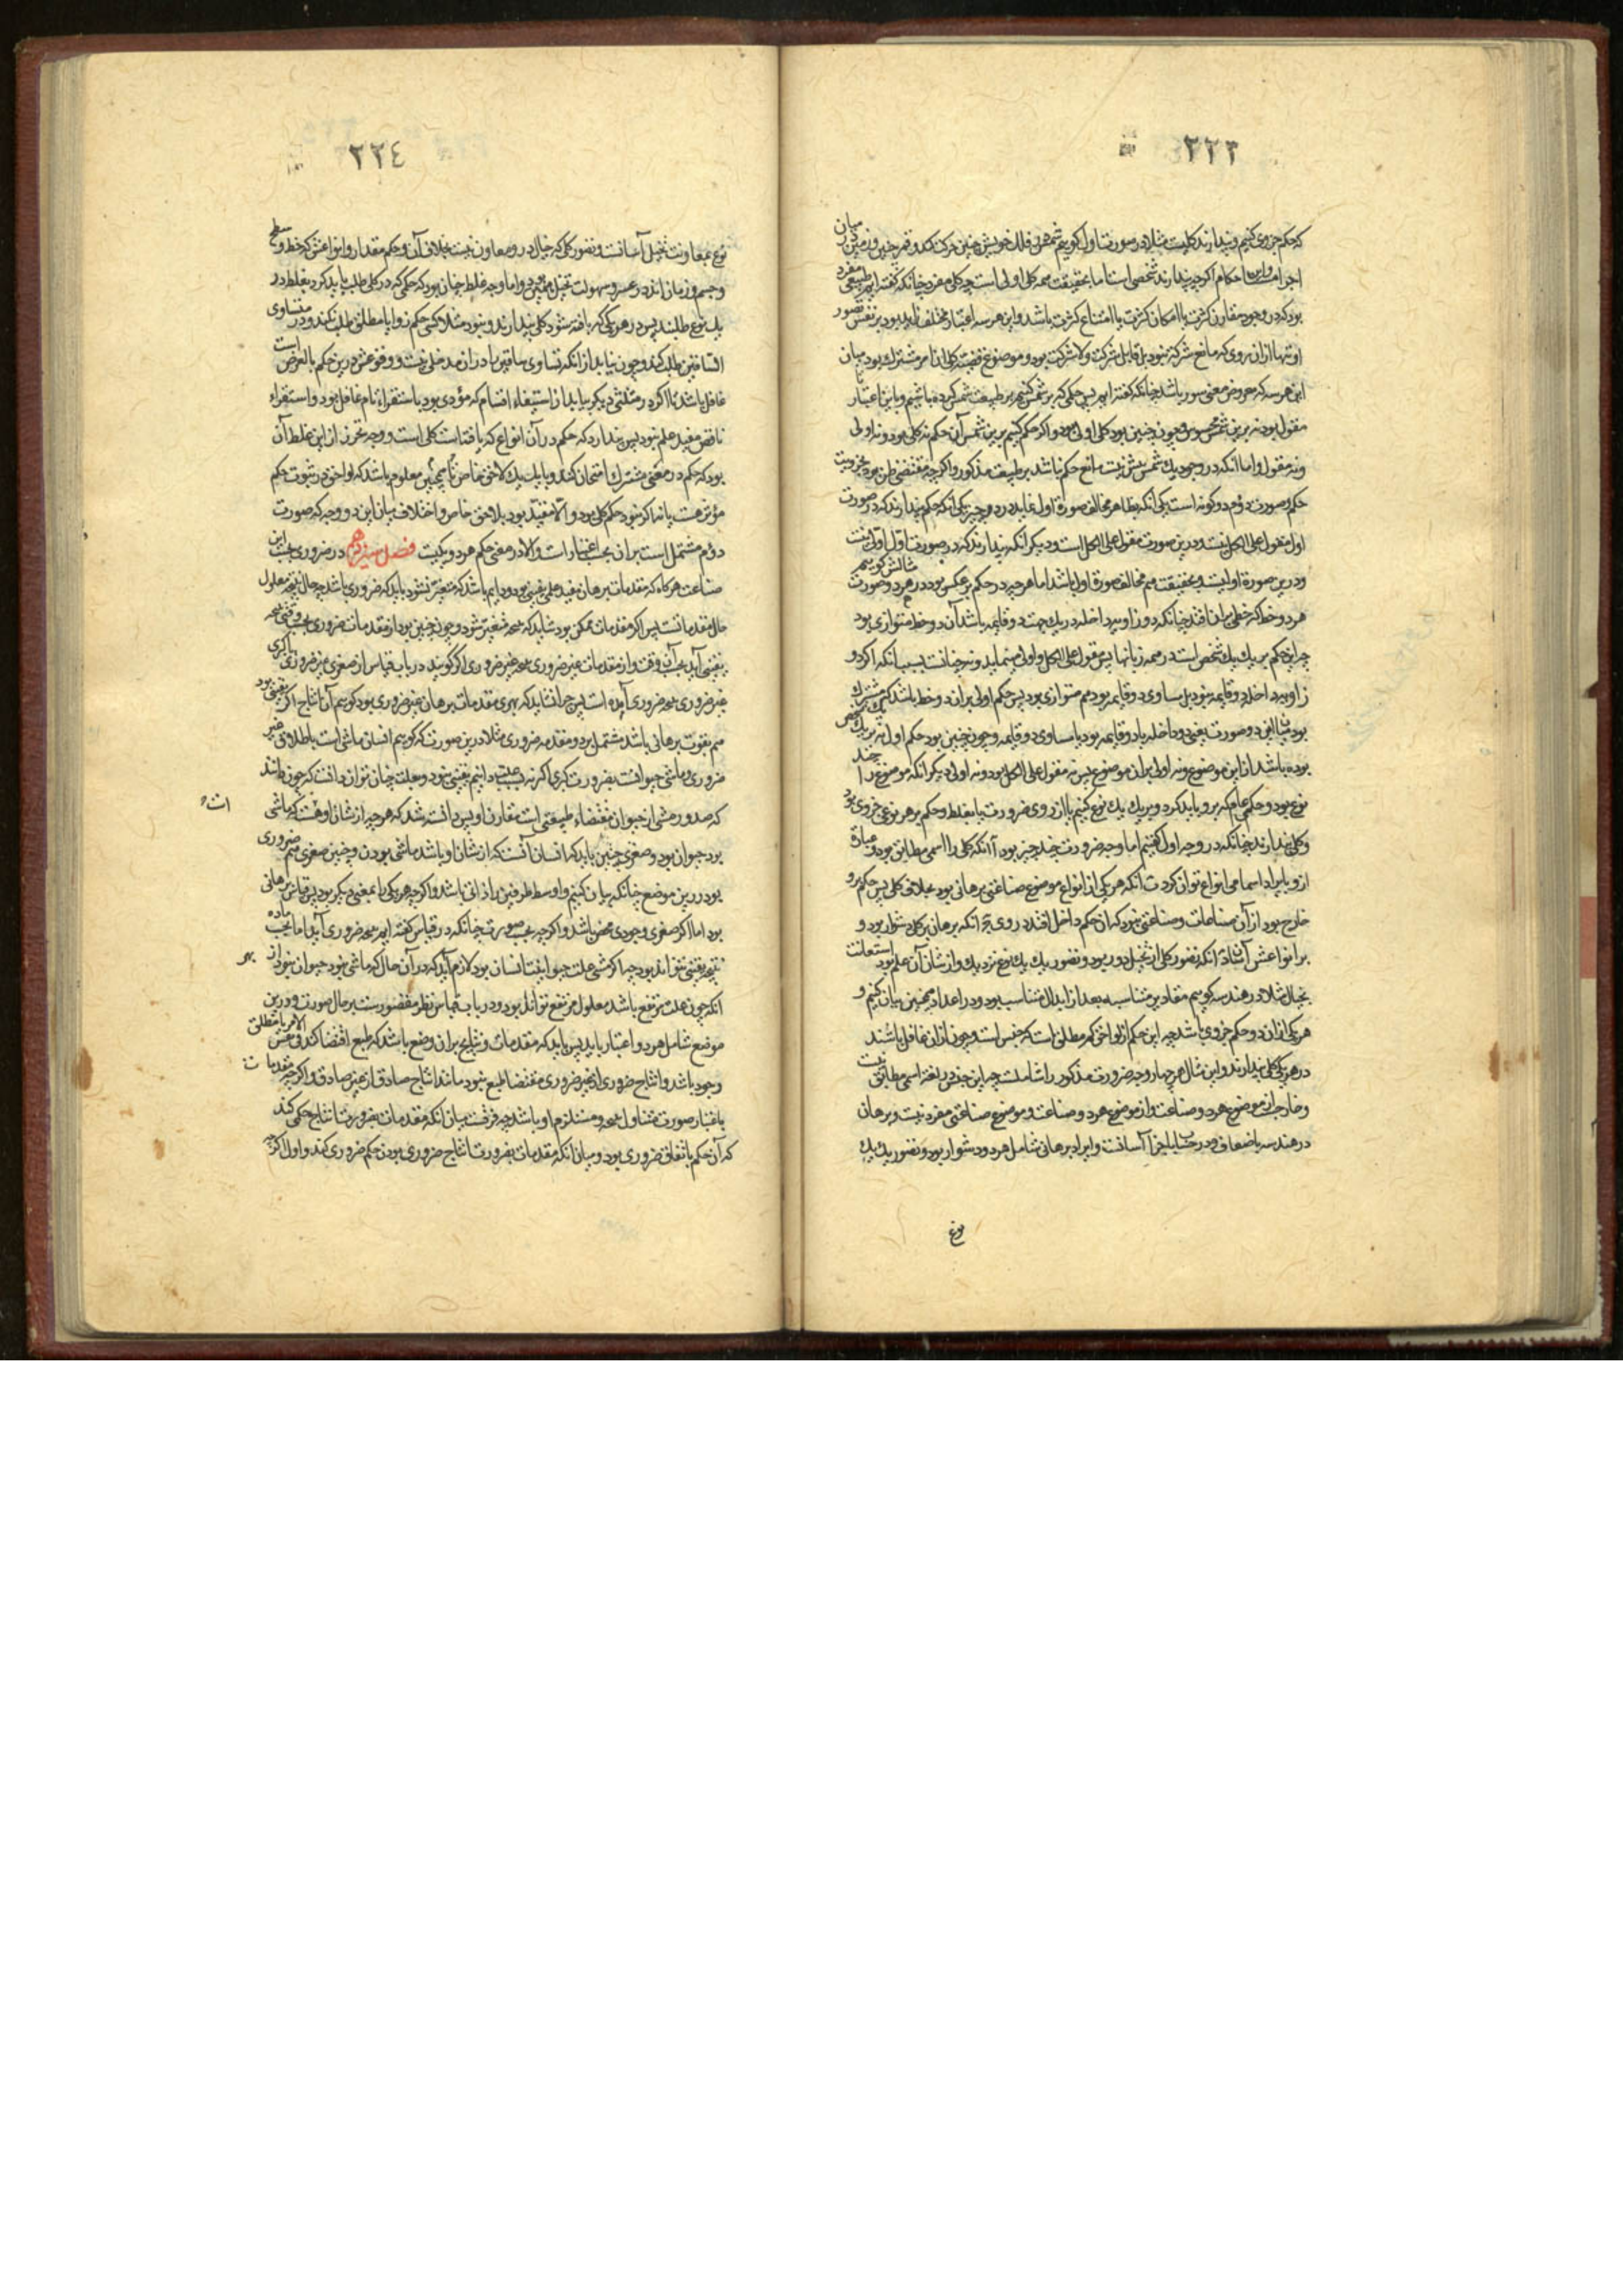 ٢٢٣
که حکم جزوی کنیم و پندارند کلیست مثلا در صورت اول گوییم شمس در فلک خویش چنین حرکت کند و قمر چنین و زمین در میان
اجرام و این احکام اگرچه پندارند شخصی است اما بحقیقت همه کلی اولی است چه کلی مفرد چنانکه گفته ایم طبیعی
بود که در وجود مقارن کثرت یا امکان کثرت یا امتناع کثرت باشد و این هر سه اعتبار مختلف زاید بود بر نفس تصور
او تنها از آن روی که مانع شرکت نبود بل قابل شرکت و لا شرکت بود و موضوع قضیه کلی آن امر مشترک بود میان
این هر سه که معروض معنی سور باشد چنانکه گفته ایم پس حکمی که بر شمس کنیم بر طبیعت شمس کرده باشیم و باین اعتبار
مقول بود نه برین شمس محسوس و چون چنین بود کلی اولی بود و اگر حکم کنیم برین شمس آن حکم نه کلی بود و نه اولی
و نه مقول و اما آنکه در وجود یک شمس بیش نیست مانع حکم نباشد بر طبیعت مذکور و اگرچه مقتضی ظن بود بجزویت
حکم و صورت دوم دو گونه است یکی آنکه بظاهر مخالف صورة اول نماید در دو چیز یکی آنکه حکم پندارند که در صورت
اول مقول علی الکل نیست و درین صورت مقول علی الکل است و دیگر آنکه پندارند که در صورت اول اولی نیست
و درین صورة اولیست و بحقیقت هم مخالف صورة اول باشد اما هرچه در حکم بر عکس بود در هر دو صورت مثالش گوییم
هر دو خط که خطی بر آن افتد چنانکه دو زاویه داخله در یک جهت دو قایمه باشد آن دو خط متوازی بود
چه این حکم بر یک یک شخص است در همه زمانها پس مقول علی الکل و اولی مینماید و نه چنانست بسبب آنکه اگر دو
زاویه داخله دو قایمه نبود بل مساوی دو قایمه بود هم متوازی بود پس حکم اولی بر آن دو خط باشد که مشترک
بود میان این دو صورت یعنی دو داخله یا دو قایمه بود یا مساوی دو قایمه و چون چنین بود حکم اول نه بر یک یک شخص
بوده باشد از این موضوع و نه اولی بر آن موضوع پس نه مقول علی الکل بود و نه اولی دیگر آنکه موضوع را چند
نوع بود و حکمی عام که برو باید کرد و بر یک یک نوع کنیم یا از روی ضرورت یا بغلط و حکم بر هر نوعی جزوی بود
و کلی پندارند چنانکه در وجه اول گفتیم اما وجه ضرورت چند چیز بود آ آنکه کلی را اسمی مطابق نبود و عبارة
ازو بایراد اسامی انواع توان کرد ب آنکه هر یکی از انواع موضوع صناعتی برهانی بود بخلاف کلی پس حکم برو
خارج بود از آن صناعات و صناعتی نبود که آن حکم داخل افتد در وی ج آنکه برهان بر کل دشوار بود و
بر انواعش آسان د آنکه تصور کلی از تخیل دور بود و تصور یک یک نوع نزدیک و از شان آن علم بود استعانت
بخیال مثلا در هندسه گوییم مقادیر متناسبه بعد از ابدال متناسب بود و در اعداد همچنین بیان کنیم و
هر یکی از آن دو حکم جزوی باشد چه این حکم از لواحق کم مطلق است که جنس است و چون از آن غافل باشند
در هر یکی کلی پندارند و این مثال هر چهار وجه ضرورت مذکور را شاملست چه این جنس را در لغة اسمی مطابق نیست
و خارجست از موضوع هر دو صناعت و از موضوع هر دو صناعت و موضوع صناعتی مفرد نیست و برهان
در هندسه باضعاف و در حساب باجزا آسانست و ایراد برهانی شامل هر دو دشوار بود و تصور یک یک
نوع
٢٢٤
نوع بمعاونت تخیل آسانست و تصور کلی که خیال در و معاون نیست بخلاف آن و حکم مقدار و انواعش که خط و سطح
و جسم و زمان اند در عسر و سهولت تخیل همچنین بود اما وجه غلط چنان بود که حکمی که در کلی طلب باید کرد بغلط در
یک نوع طلبند پس در هر یکی که یافته شود کلی پندارند و نبود مثلا کسی حکم زوایا مطلق طلب نکند و در متساوی
الساقین طلب کند و چون بیابد از آنکه تساوی ساقین را در آن مدخلی نیست و وقوعش درین حکم بالعرض است
غافل باشد یا اگر در مثلثی دیگر بیابد از استیفاء اقسام که مؤدی بود باستقراء تام غافل بود و استقراء
ناقص مفید علم نبود پس پندارد که حکم در آن انواع که یافتست کلی است و وجه تحرز از این غلط آن
بود که حکم در معنی مشترک امتحان کند و با یک یک لاحق خاص تا یقین معلوم باشد که لواحق در ثبوت حکم
مؤثر هست یا نه اگر نبود حکم کلی بود و الا مقید بود بلاحق خاص و اختلاف میان این دو وجه که صورت
دوم مشتمل است بر آن بحسب اعتبارات و الا در معنی حکم هر دو یکیست فصل سیزدهم در ضروری بحسب این
صناعت هرگاه که مقدمات برهان مفید علمی یقینی بود و دایم باشد که متغیر نشود باید که ضروری باشد چه حال نتیجه معلول
حال مقدماتست پس اگر مقدمات ممکن بود شاید که نتیجه متغیر شود و چون چنین بود از مقدمات ضروری بحسب وقتی نتیجه
یقینی آید بحسب آن وقت و از مقدمات غیر ضروری نتیجه غیر ضروری اگر گویند در باب قیاس از صغری غیر ضروری با کبری
غیر ضروری نتیجه ضروری آمده است پس چرا نشاید که بهری مقدمات برهان غیر ضروری بود گوییم آن انتاج اگر یقینی بود
هم بقوت برهانی باشد مشتمل بر دو مقدمه ضروری مثلا درین صورت که گوییم انسان ماشی است باطلاق غیر
ضروری و ماشی حیوانست بضرورت کبری اگر نه بسبب علت دانیم یقینی نبود و بعلت چنان توان دانست که چون دانند
که صدور مشی از حیوان مقتضاء طبیعتی است مقارن او پس دانسته شد که هرچه از شان او هست که ماشی
بود حیوان بود و صغری چنین باید که انسان آنست که از شان او باشد ماشی بودن و چنین صغری هم ضروری
بود درین موضع چنانکه بیان کنیم و اوسط طرفین را ذاتی باشد و اگرچه هر یکی را بمعنی دیگر بود پس قیاس برهانی
بود اما اگر صغری وجودی محض باشد و اگرچه بحسب صورت چنانکه در قیاس گفته ایم نتیجه ضروری آید اما بحسب ماده
نتیجه یقینی نتواند بود چه اگر مشی علت حیوانیت انسان بود لازم آید که در آن حال که ماشی نبود حیوان نبود از بهر
آنکه چون علت مرتفع باشد معلول مرتفع تواند بود و در باب قیاس نظر مقصورست بر حال صورت و درین
موضع شامل هر دو اعتبار باید پس باید که مقدمات و نتایج بر آن وضع باشد که طبع اقتضا کند فی نفس الامر یا مطلق
وجود باشد و انتاج ضروری از غیر ضروری مقتضا طبع نبود مانند انتاج صادق از غیر صادق و اگرچه مقدمات
باعتبار صورت متناول نتیجه و مستلزم او باشد چه فرقست میان آنکه مقدمات بضرورت انتاج حکمی کند
که آن حکم باتفاق ضروری بود و میان آنکه مقدمات بضرورت انتاج ضروری بودن حکم ضروری کند و اول اگرچه